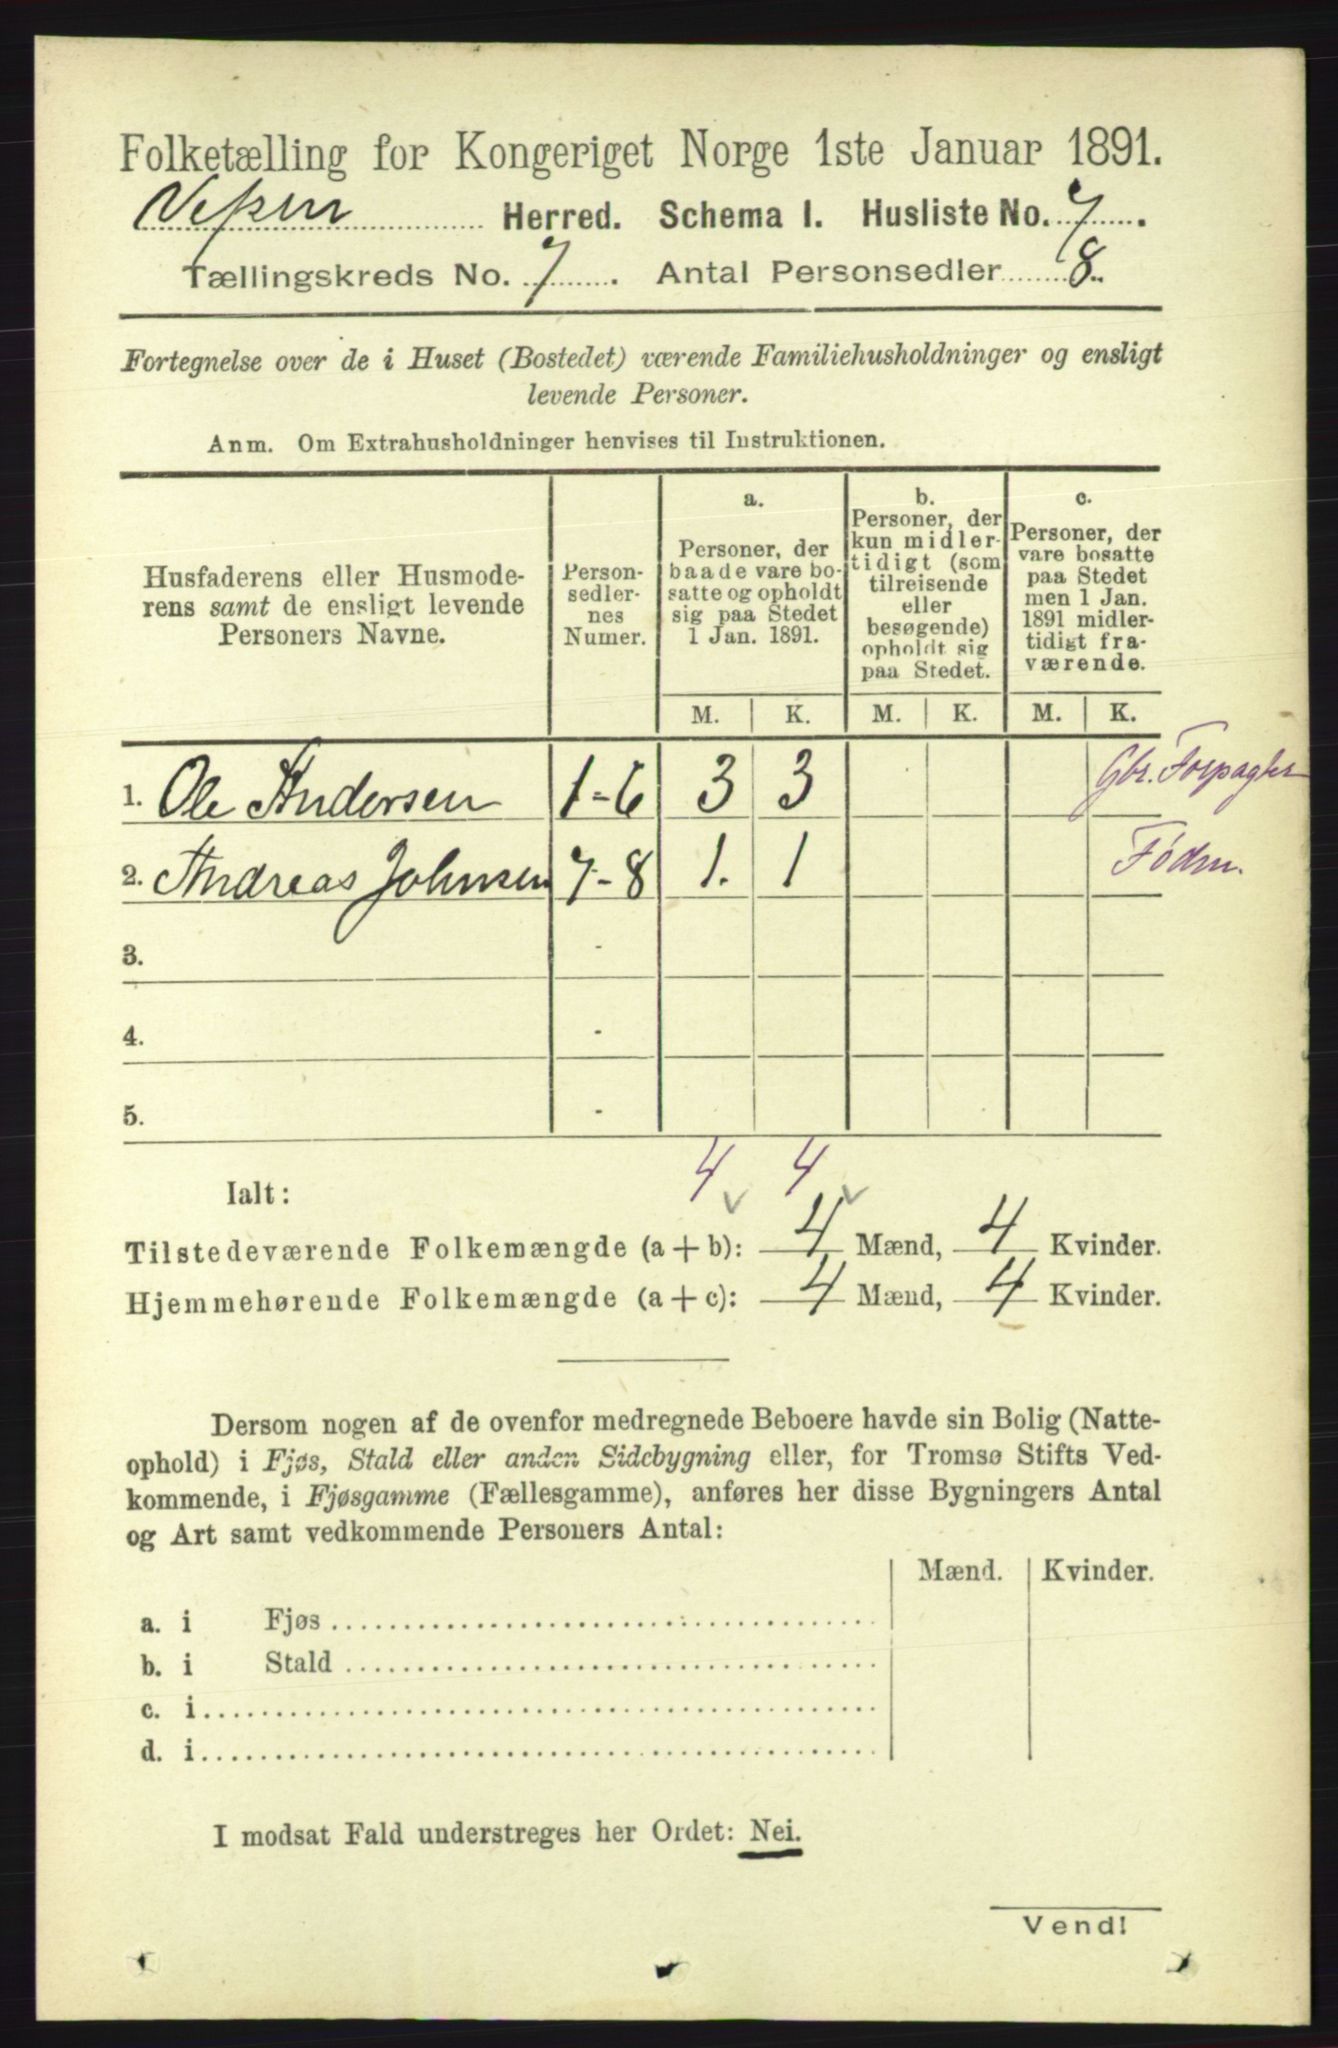 Folketælling for Kongeriget Norge 1ste Januar 1891.
Herred. Schema I. Husliste No. 7.
Tællingskreds No. 7. Antal Personsedler 8.
Fortegnelse over de i Huset (Bostedet) værende Familiehusholdninger og ensligt
levende Personer.
Anm. Om Extrahusholdninger henvises til Instruktionen.
Husfaderens eller Husmode-
rens samt de ensligt levende
Personers Navne.
Person-
sedler-
nes
Numer.
a.
Personer, der
baade vare bo-
satte og opholdt
sig paa Stedet
1 Jan. 1891.
b.
Personer, der
kun midler-
tidigt (som
tilreisende
eller
besøgende)
opholdt sig
paa Stedet.
c.
Personer, der
vare bosatte
paa Stedet
men 1 Jan.
1891 midler-
tidigt fra-
værende.
M. K. M. K. M. K.
1. Ole Andersen 1-6 3 3 Gbr. Forpagter
2. Andreas Johnsen 7-8 1. 1
3. -
4. -
5. -
4 4
Ialt:
Tilstedeværende Folkemængde (a + b): 4 Mænd, 4 Kvinder.
Hjemmehørende Folkemængde (a + c): 4 Mænd, 4 Kvinder.
Dersom nogen af de ovenfor medregnede Beboere havde sin Bolig (Natte-
ophold) i Fjøs, Stald eller anden Sidebygning eller, for Tromsø Stifts Ved-
kommende, i Fjøsgamme (Fællesgamme), anføres her disse Bygningers Antal
og Art samt vedkommende Personers Antal:
Mænd. Kvinder.
a. i Fjøs
b. i Stald
c. i
d. i
I modsat Fald understreges her Ordet: Nei.
Vend!